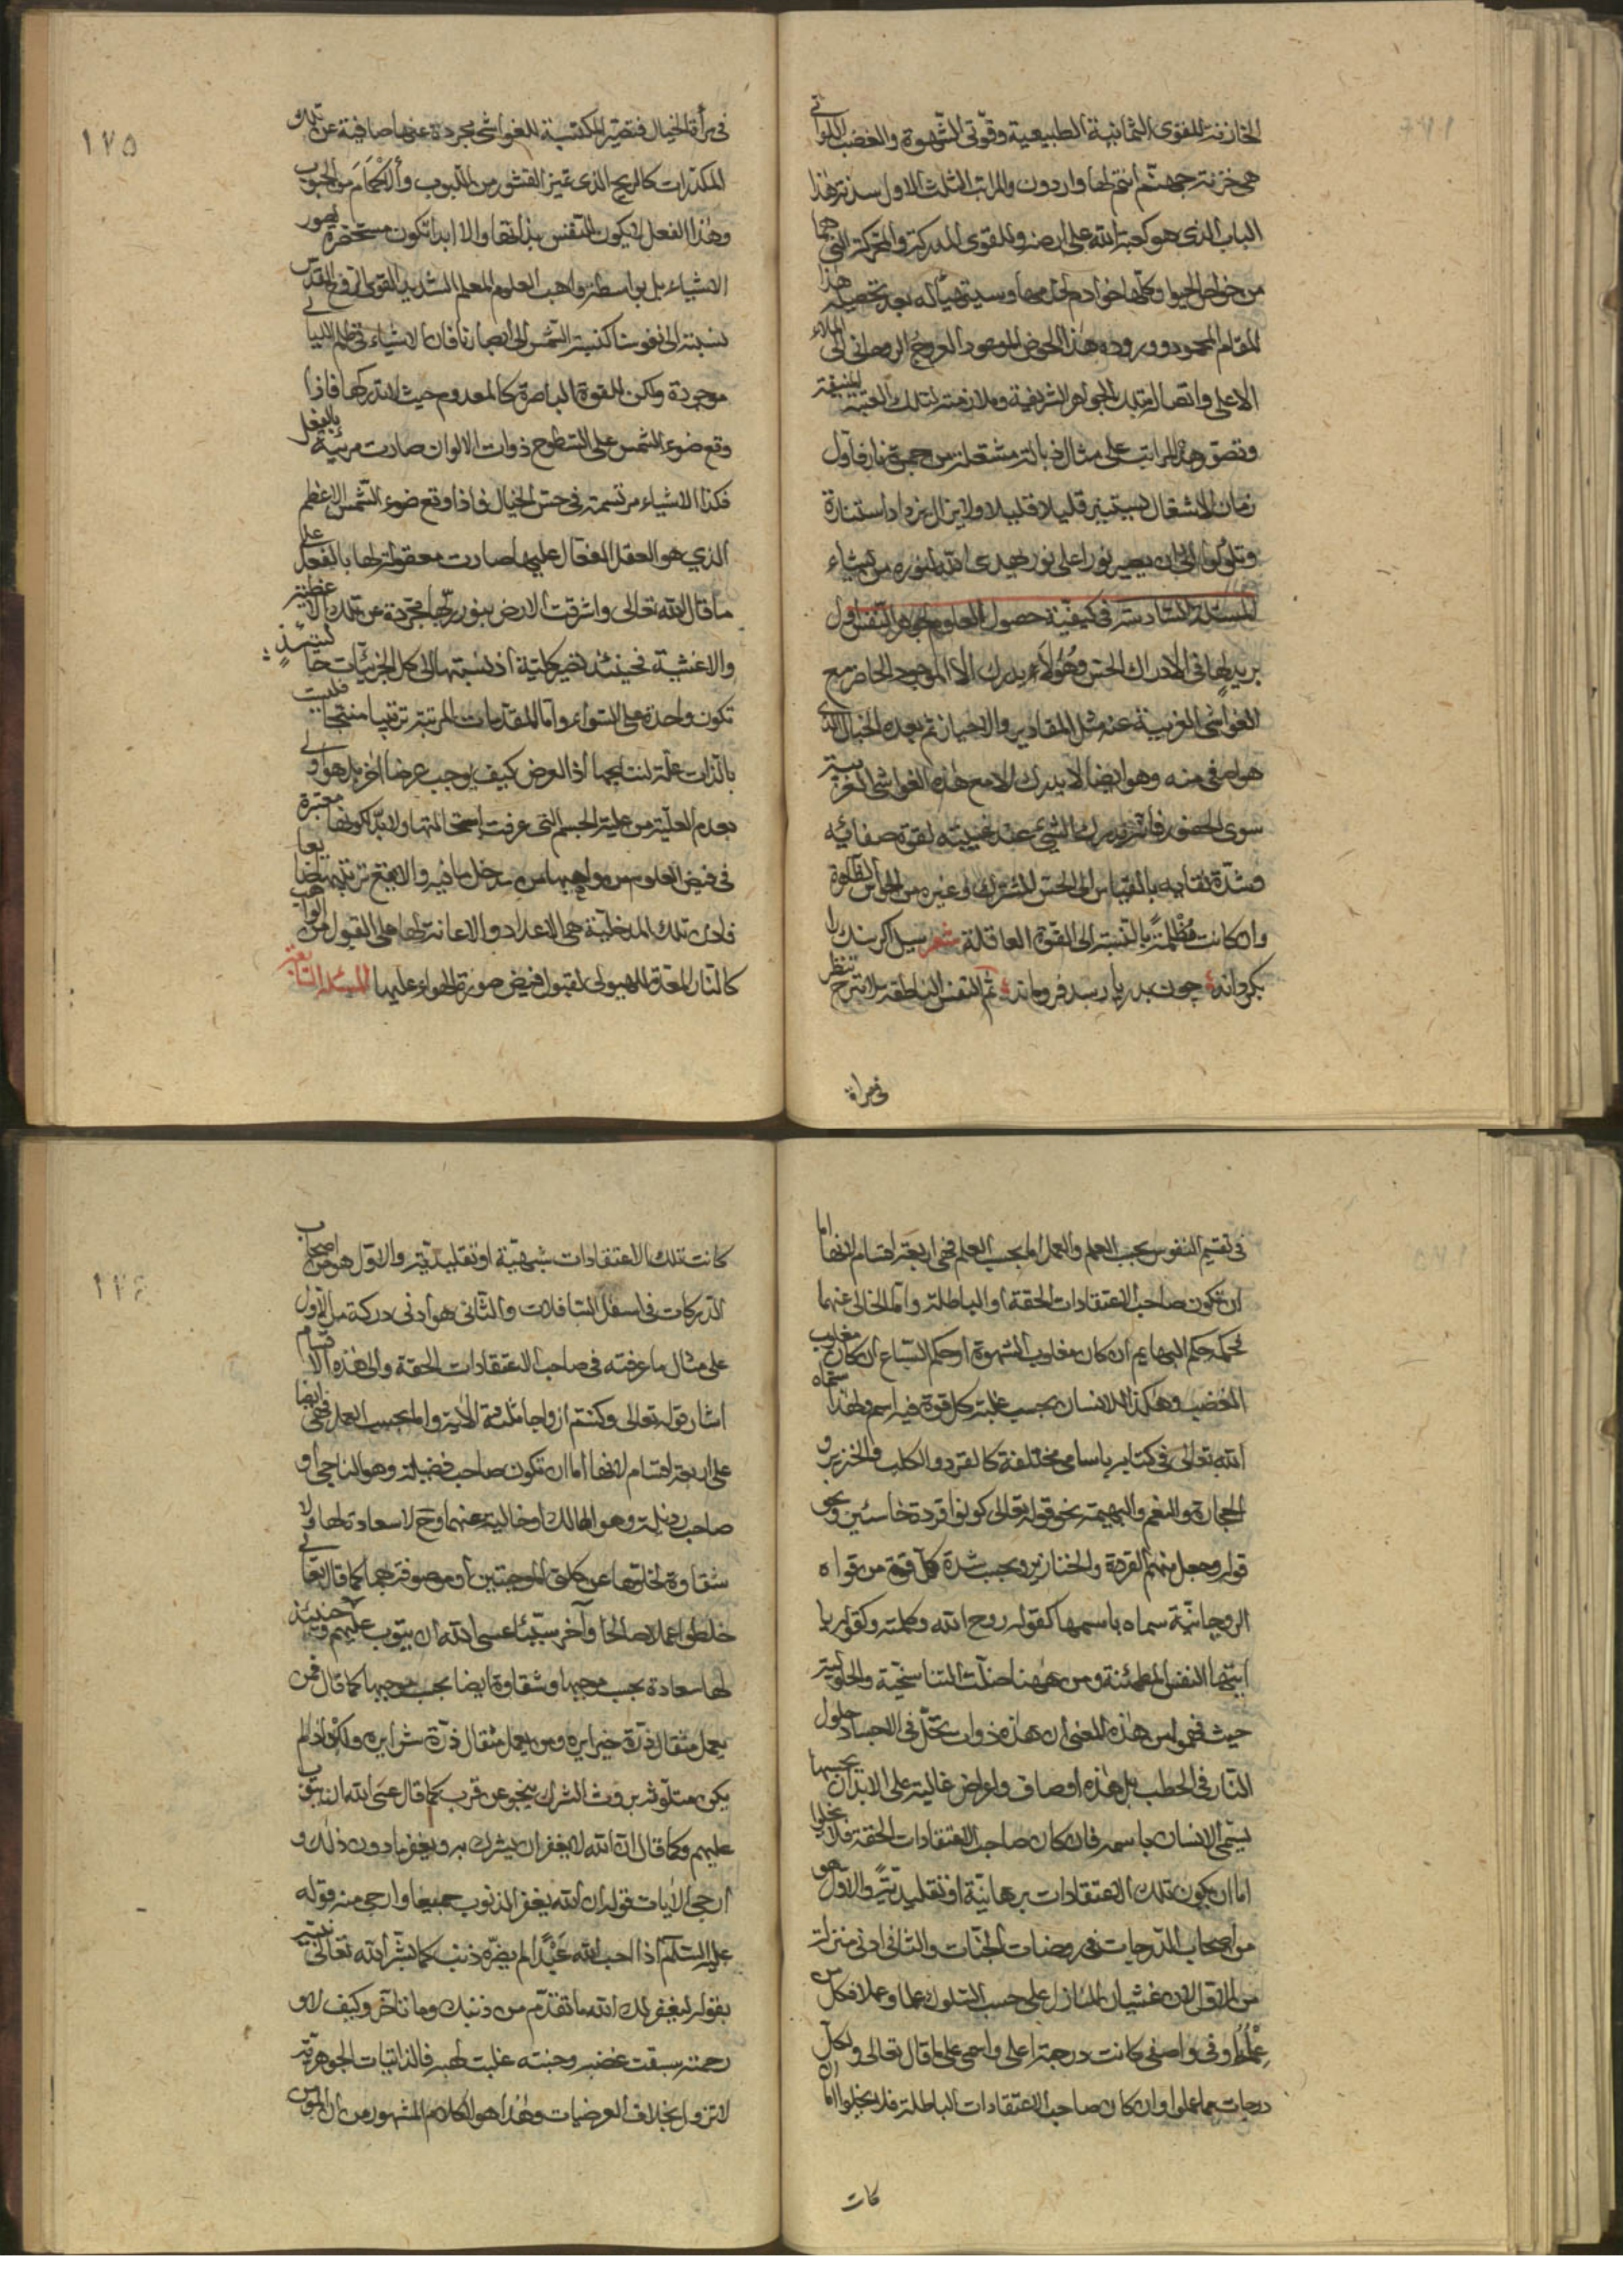 الخازنة للقوى الثمانية الطبيعية وقوتى الشهوة والغضب اللواتى
هى خزنة جهنم انتم لها واردون والمراتب الثلث الاول سدنة هذا
الباب الذى هو كعبة الله على ارضه وللقوى المدركة والمحركة التى هما
من خواص الحيوان وكلها خوادم له وسيتهيأ له بعد تحصيله هذا
المقام المحمود ووروده هذا الحوض الموعود العروج الروحانى الى الملاء
الاعلى واتصاله بتلك الجواهر الشريفة وملازمته لتلك العتبة المنيفة
وتصور هذه المراتب على مثال ذبالة مشتعلة من جمرة نار فاول
زمان الاشتعال يستنير قليلا قليلا ولا يزال يزداد استنارة
وتلؤلؤا الى ان يصير نورا على نور يهدى الله لنوره من يشاء
المسئلة السادسة فى كيفية حصول العلوم لجوهر النفس اول
بريد لها فى الادراك الحس وهؤلاء يدرك الا الموجود الحاضر مع
الغواشى الغريبة عنه مثل المقادير والاحياز ثم بعده الخيال الذى
هو اصفى منه وهو ايضا لا يدرك الا مع هذه الغواشى الغريبة
سوى الحضور فانه يدرك الشيئ عند غيبته لقوة صفائيه
وشدة نقائيه بالقياس الى الحس المشترك وغيره من الحواس الظاهرة
وان كانت مظلمة بالنسبة الى القوة العاقلة شعر سيل اكر سنك را
بكرداند چون بدريا رسد فروماند ثم النفس الناطقة لا تبرح تنظر
فى مرأة
فى مرأة الخيال فتصير المكتسبة للغواشى مجردة عنها صافية عن تلك
المكدرات كالريح الذى تميز القشور من اللبوب والأكمام من الحبوب
وهذا الفعل لا يكون للنفس بذاتها والا ابدا تكون مستحضرة لصور
الاشياء بل بواسطة واهب العلوم المعلم الشديد القوى الروح القدس
نسبته الى نفوسنا كنسبة الشمس الى ابصارنا فان الاشياء فى ظلم الليالى
موجودة ولكن للقوة الباصرة كالمعدوم حيث لا تدركها فاذا
وقع ضوء الشمس على السطوح ذوات الالوان صارت مرئية بالفعل
فكذا الاشياء مرتسمة فى حس الخيال فاذا وقع ضوء الشمس الاعظم
الذي هو العقل الفعال عليها صارت معقولة لها بالفعل على
ما قال الله تعالى واشرقت الارض بنور ربها مجردة عن تلك الاغطية
والاغشية فحينئذ تصير كلية اذ نسبتها الى كل الجزئيات حينئذ
تكون واحدة على السواء واما المقدمات المرتبة ترتيبا منتجا فليست
بالذات علة لنتايجها اذ العرض كيف يوجب عرضا اخر بل هو اولى
بعدم العلية من علية الجسم التى عرفت استحالتها ولا بد لكونها معتبرة
فى فيض العلوم من مواهبها من مدخل ما فيه والا يقع ترتيبها ضايعا
فاذن تلك المدخلية هى الاعداد والاعانة لها على القبول من الواهب
كالنار المعدة للهيولى لقبول فيض صورة الهواء عليها المسئلة السابعة
١٧٥
فى تقسيم النفوس بحسب العلم والعمل اما بحسب العلم فهى اربعة اقسام لانها اما
ان تكون صاحب الاعتقادات الحقة او الباطلة واما الخالى عنهما
فحكمه حكم البهايم ان كان مغلوب الشهوة او حكم السباع ان كان مغلوب
الغضب وهكذا للانسان بحسب غلبة كل قوة فيه اسم ولهذا سماه
الله تعالى فى كتابه باسامى مختلفة كالقرد والكلب والخنزير و
الحجارة والنعم والبهيمة نحو قوله تعالى كونوا قردة خاسئين ونحو
قوله وجعل منهم القردة والخنازير وبحسب شدة كل قوة من قواه
الروحانية سماه باسمها كقوله روح الله وكلمته وكقوله يا
ايتها النفس المطمئنة ومن ههنا ضلت التناسخية والحلولية
حيث فهموا من هذه المعنى ان هذه ذوات تحل فى الاجساد حلول
النار فى الحطب بل هذه اوصاف واعراض غالبة على الابدان بحسبها
يسمى الانسان باسمه فان كان صاحب الاعتقادات الحقة فلا يخلوا
اما ان يكون تلك الاعتقادات برهانية او تقليدية والاول هو
من اصحاب الدرجات فى روضات الجنات والثانى ادنى منزلة
من الاول لان غشيان المنازل على حسب السلوك علما وعملا فكل من
علمه اوفى واصفى كانت درجته اعلى واسمى على ما قال تعالى ولكل
درجات مما عملوا وان كان صاحب الاعتقادات الباطلة فلا يخلوا اما ان
كانت
كانت تلك الاعتقادات شبهية او تقليدية والاول هو من اصحاب
الدركات فى اسفل السافلات والثانى هو ادنى دركة من الاول
على مثال ما عرفته فى صاحب الاعتقادات الحقة والى هذه الاقسام
اشار قوله تعالى وكنتم ازواجا ثلثة الآية واما بحسب العمل فهى ايضا
على اربعة اقسام لانها اما ان تكون صاحب فضيلة وهو الناجى او
صاحب رذيلة وهو الهالك او خالية عنهما وح لا سعادة لها ولا
شقاوة لخلوها عن كلتى الموجبتين او موصوفة بهما كما قال تعالى
خلطوا عملا صالحا وآخر سيئا عسى الله ان يتوب عليهم وحينئذ
لها سعادة بحسب موجبها وشقاوة ايضا بحسب موجبها كما قال فمن
يعمل مثقال ذرة خيرا يره ومن يعمل مثقال ذرة شرا يره ولكن اذا لم
يكن متلوثة بروث الشرك ينجو عن قرب كما قال عسى الله ان يتوب
عليهم وكما قال ان الله لا يغفر ان يشرك به ويغفر ما دون ذلك و
ارجى الآيات قوله ان الله يغفر الذنوب جميعا وارجى منه قوله
عليه السلام اذا احب الله عبدا لم يضره ذنب كما بشر الله تعالى نبيه
بقوله ليغفر لك الله ما تقدم من ذنبك وما تأخر وكيف لا و
رحمته سبقت غضبه وجنته غلبت لهبه فالذاتيات الجوهرية
لا تزول بخلاف العرضيات وهذا هو الكلام المشهور من ان المؤمن
١٧٦